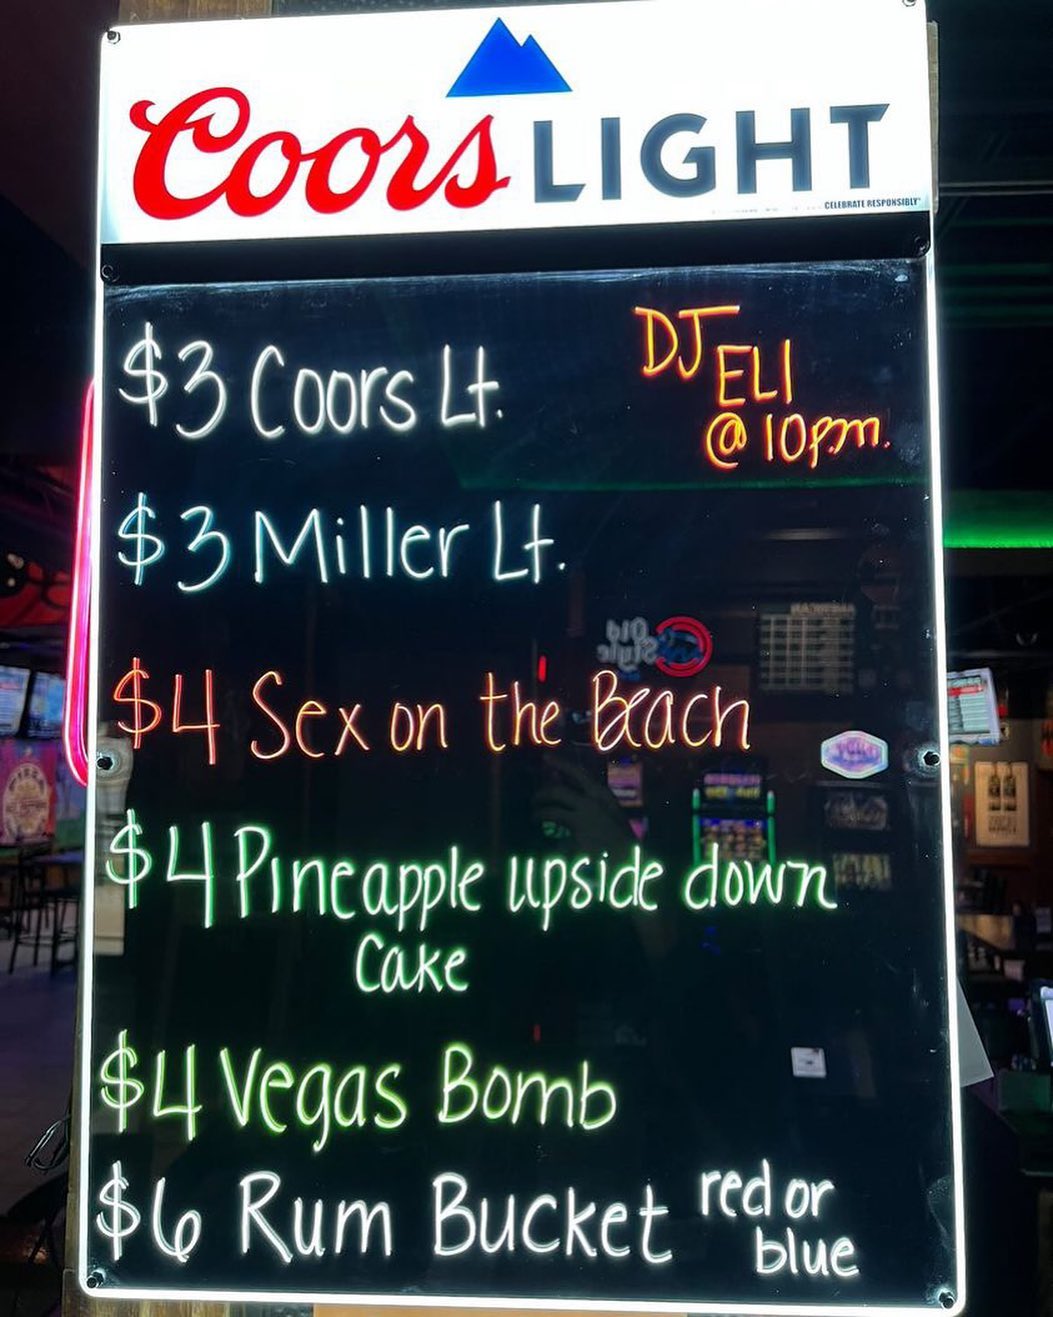 Coors LIGHT
CELEBRATE RESPONSIBLY®
$3 Coors Lt.
DJ
ELI
@ 10pm.
$3 Miller Lt.
Old
Style
$4 Sex on the Beach
$4 Pineapple upside down
Cake
$4 Vegas Bomb
$6 Rum Bucket red or
blue